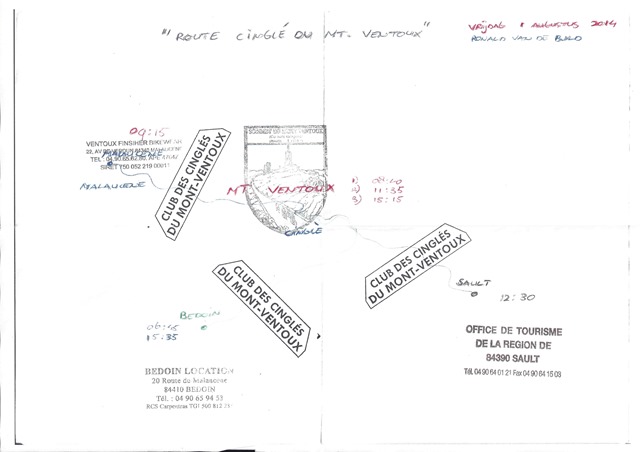 "ROUTE CINGLÉ DU MT. VENTOUX"
VRIJDAG 1 AUGUSTUS 2014
RONALD VAN DE
09:15
VENTOUX FINSIHER BIKEWEAR
MALAUCENE
MALAUCENE
CLUB DES CINGLÉS
DU MONT-VENTOUX
SOMMET DU MONT VENTOUX
MT. VENTOUX
1) 08:40
2) 11:35
3) 15:15
CINGLÈ
CLUB DES CINGLÉS
DU MONT-VENTOUX
CLUB DES CINGLÉS
DU MONT-VENTOUX
SAULT
12:30
BEDOIN
15:35
OFFICE DE TOURISME
DE LA REGION DE
84390 SAULT
Tél. 04 90 64 01 21 Fax 04 90 64 15 03
BEDOIN LOCATION
20 Route du Malaucene
84410 BEDOIN
Tél. : 04 90 65 94 53
RCS Carpentras